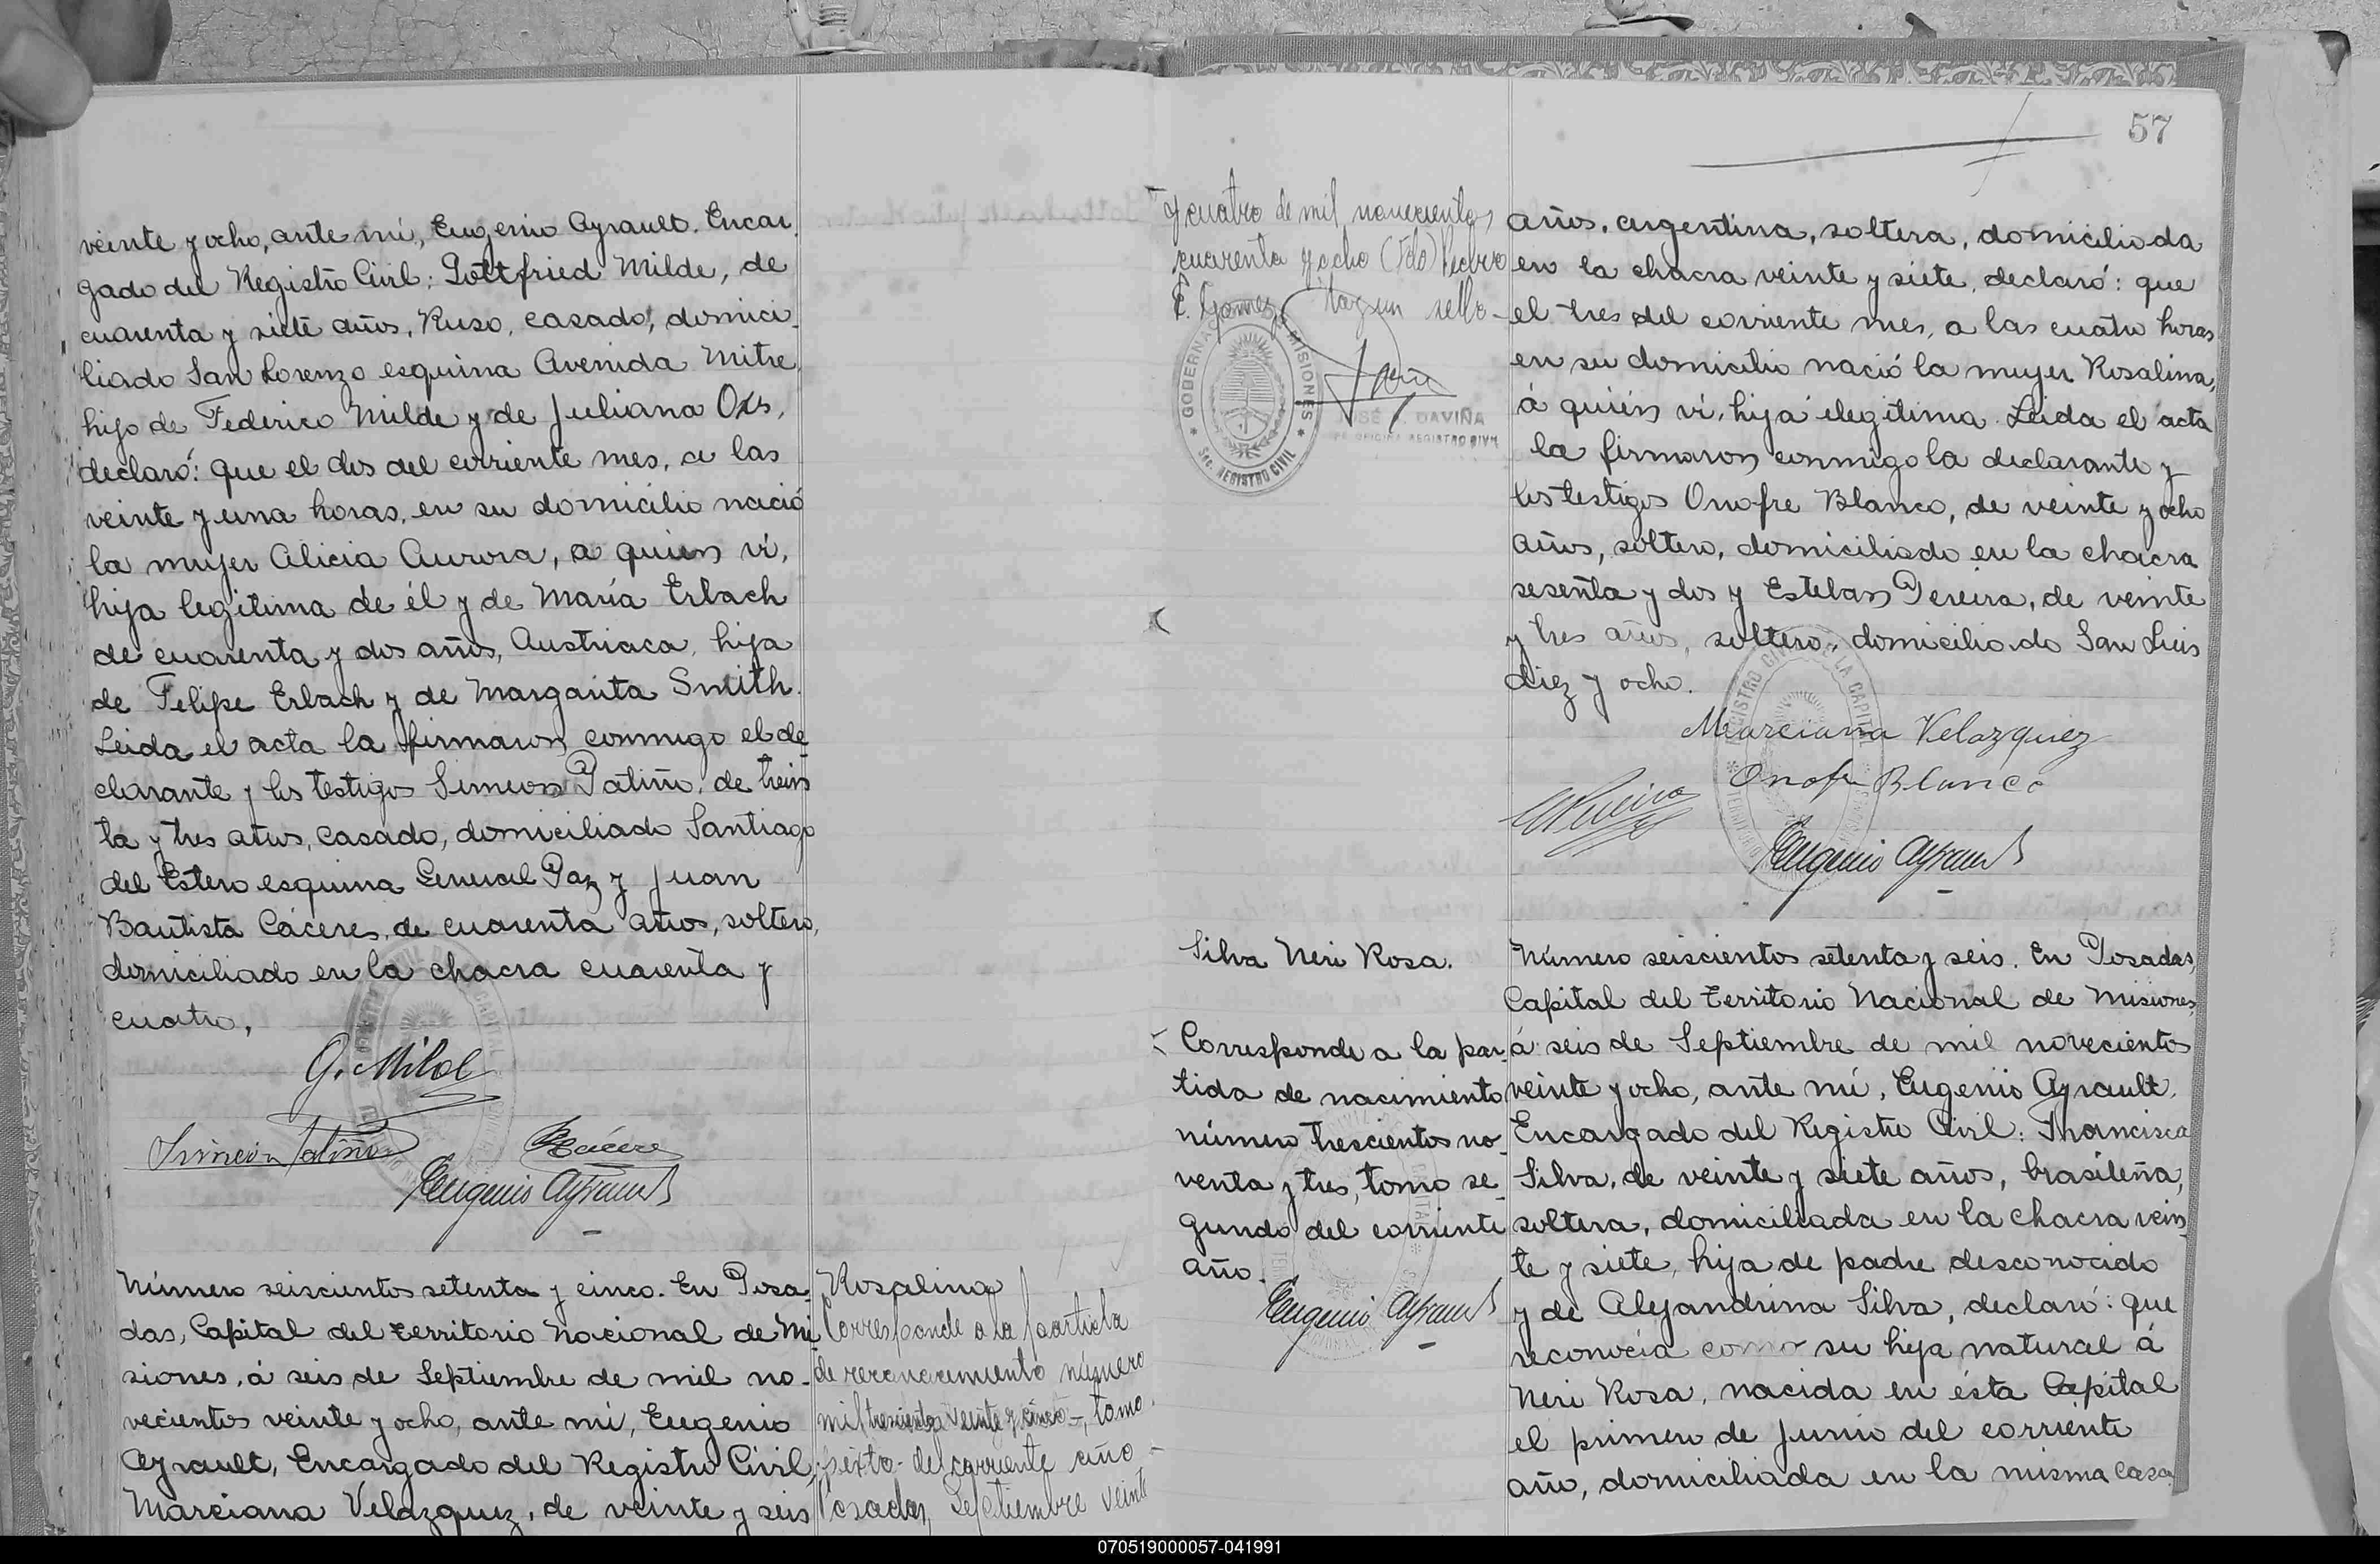 veinte y ocho, ante mí, Eugenio Ayrault. Encar
gado del Registro Civil: Gottfried Milde, de
cuarenta y siete años, Ruso, casado, domici-
liado San Lorenzo esquina Avenida Mitre,
hijo de Federico Milde y de Juliana Oxs,
declaró: que el dos del corriente mes, a las
veinte y una horas, en su domicilio nació
la mujer Alicia Aurora, a quien ví,
hija legítima de él y de María Erbach
de cuarenta y dos años, Austriaca, hija
de Felipe Erbach y de Margarita Smith.
Leida el acta la firmaron conmigo el de
clarante y los testigos Simeon Patiño, de trein
ta y tres años, casado, domiciliado Santiago
del Estero esquina General Paz y Juan
Bautista Cáceres, de cuarenta años, soltero,
domiciliado en la chacra cuarenta y
cuatro,
G. Milde
Simeon Patiño
JBCáceres
Eugenio Ayrault
Número seiscientos setenta y cinco. En Posa-
das, Capital del Territorio Nacional de Mi
siones, á seis de Septiembre de mil no-
vecientos veinte y ocho, ante mí, Eugenio
Ayrault, Encargado del Registro Civil,
Marciana Velazquez, de veinte y seis
Rosalina
Corresponde a la partida
de reconocimiento número
mil trescientos veinte y cinco-, tomo
sexto- del corriente año-
Posadas, Septiembre veinte
57
y cuatro de mil novecientos
cuarenta y ocho (Fdo)
E. Gomez Hay un sello-
GOBERNACION MISIONES
Sec. REGISTRO CIVIL
JOSÉ DAVIÑA
JEFE OFICINA REGISTRO CIVIL
años, argentina, soltera, domiciliada
en la chacra veinte y siete, declaró: que
el tres del corriente mes, a las cuatro horas
en su domicilio nació la mujer Rosalina,
á quién ví, hija ilegítima. Leida el acta
la firmaron conmigo la declarante y
los testigos Onofre Blanco, de veinte y ocho
años, soltero, domiciliado en la chacra
sesenta y dos y Esteban Pereira, de veinte
y tres años, soltero, domiciliado San Luis
diez y ocho.
Marciana Velazquez
Onofre Blanco
EPereira
Eugenio Ayrault
Silva Neri Rosa.
Corresponde a la par-
tida de nacimiento
número trescientos no-
venta y tres, tomo se-
gundo del corriente
año.
Eugenio Ayrault
Número seiscientos setenta y seis. En Posadas,
Capital del Territorio Nacional de Misiones,
á seis de Septiembre de mil novecientos
veinte y ocho, ante mí, Eugenio Ayrault,
Encargado del Registro Civil: Francisca
Silva, de veinte y siete años, brasileña,
soltera, domiciliada en la chacra vein
te y siete, hija de padre desconocido
y de Alejandrina Silva, declaró: que
reconocía como su hija natural á
Neri Rosa, nacida en ésta Capital
el primero de Junio del corriente
año, domiciliada en la misma casa
070519000057-041991